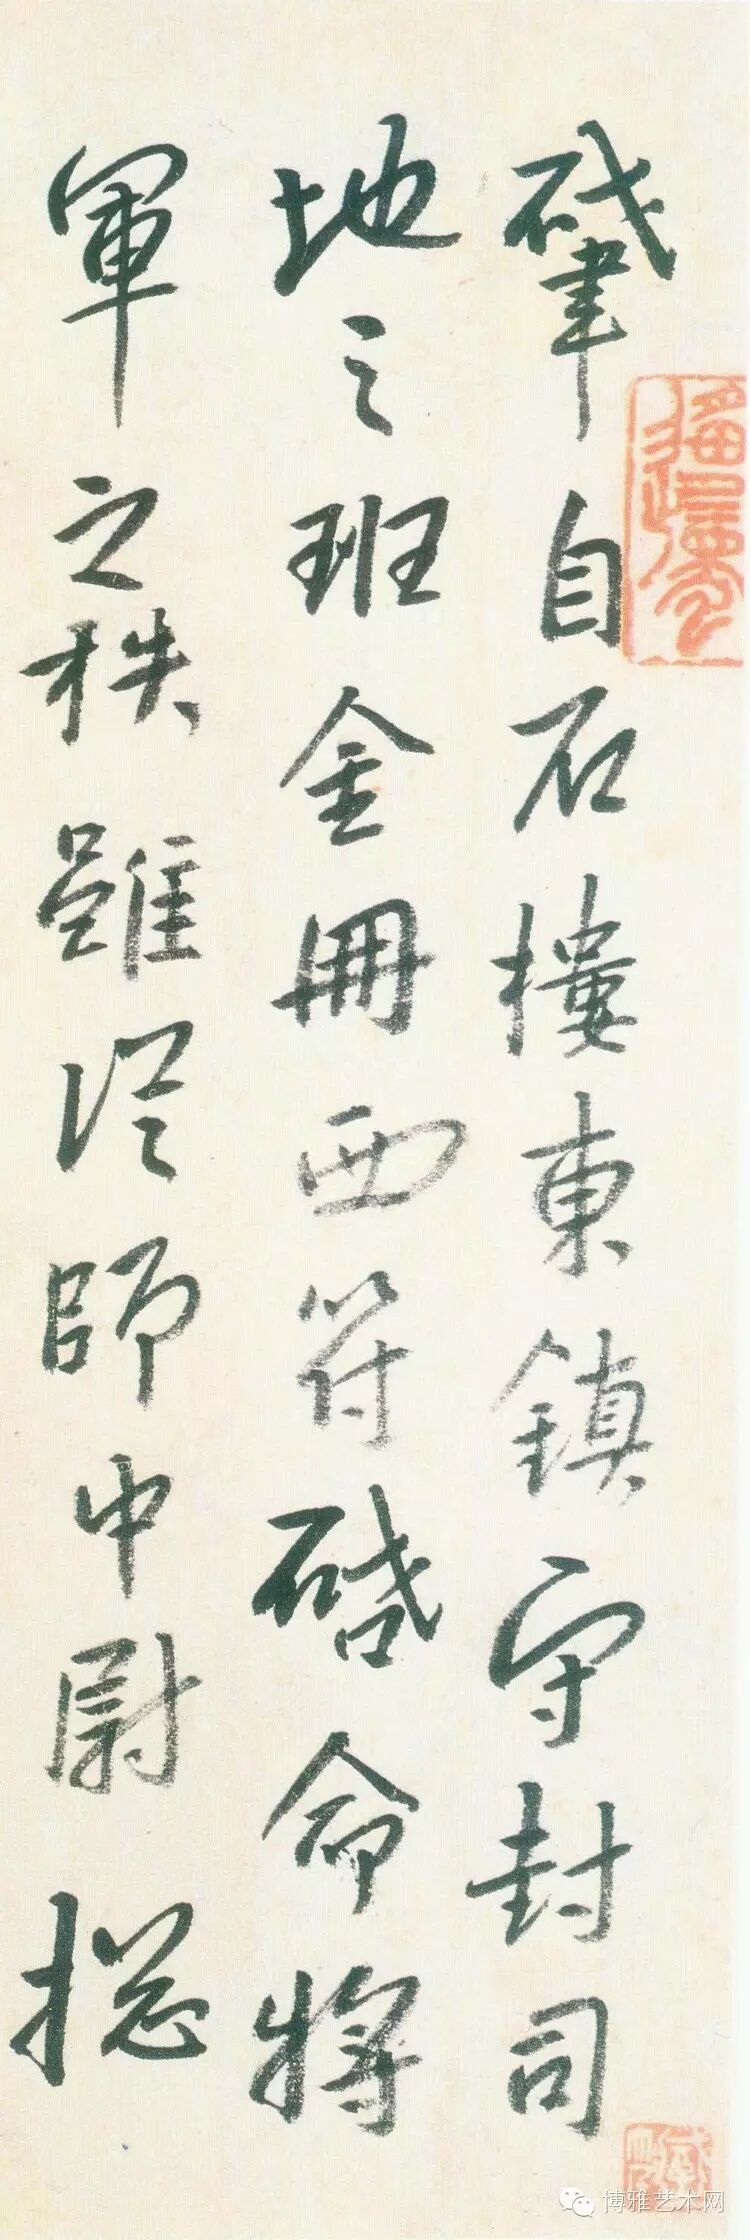 肈自石樓東鎮守封司
地之班金冊西符啓命將
軍之秩雖從師中尉揔
博雅艺术网